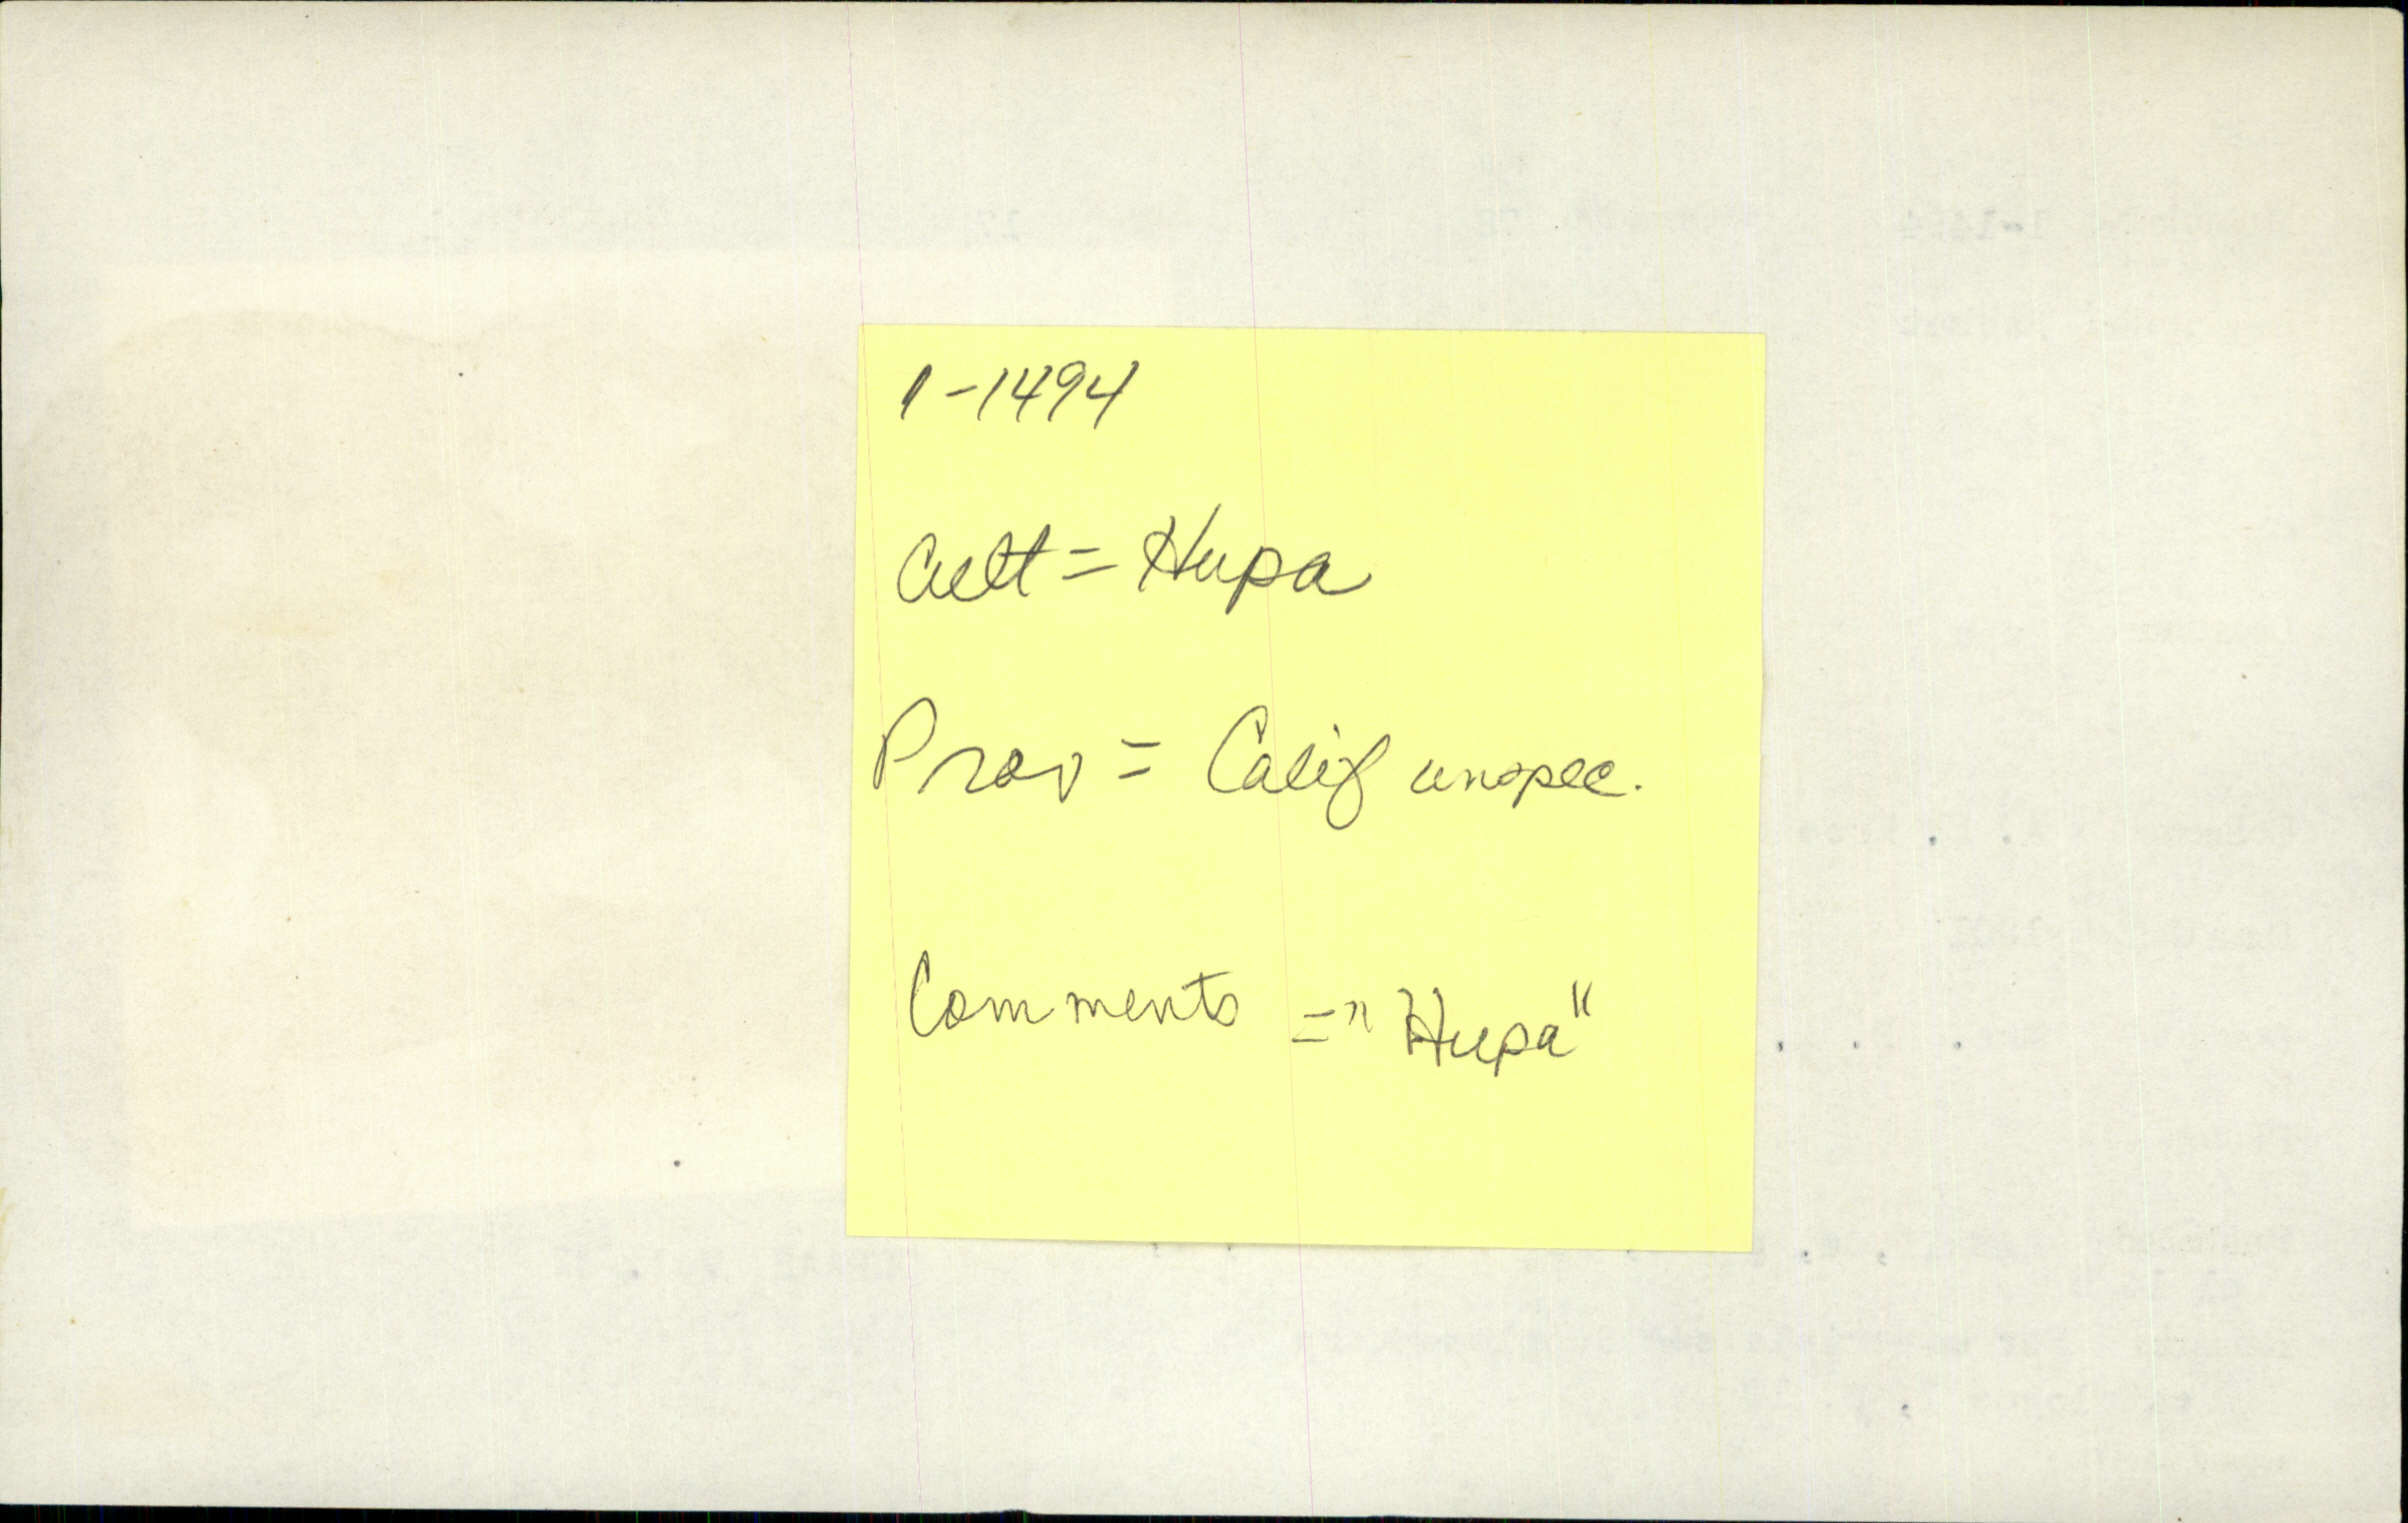 1-1494
Cult = Hupa
Prov = Calif unspec.
Comments = "Hupa"